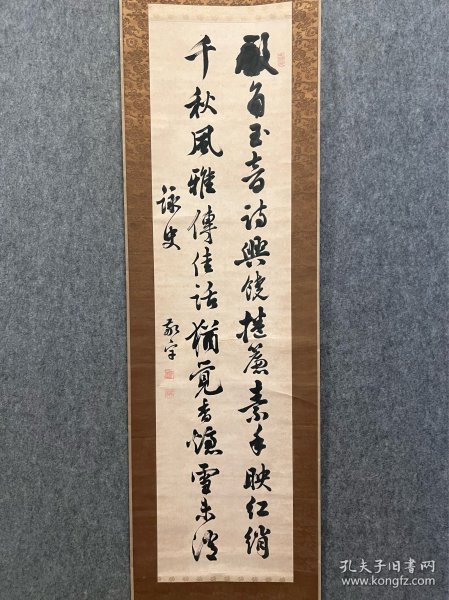 殿角玉音詩興饒捲簾素手映紅綃
千秋風雅傳佳話猶覺香爐雪未消
詠史
孔夫子旧书网
www.kongfz.com